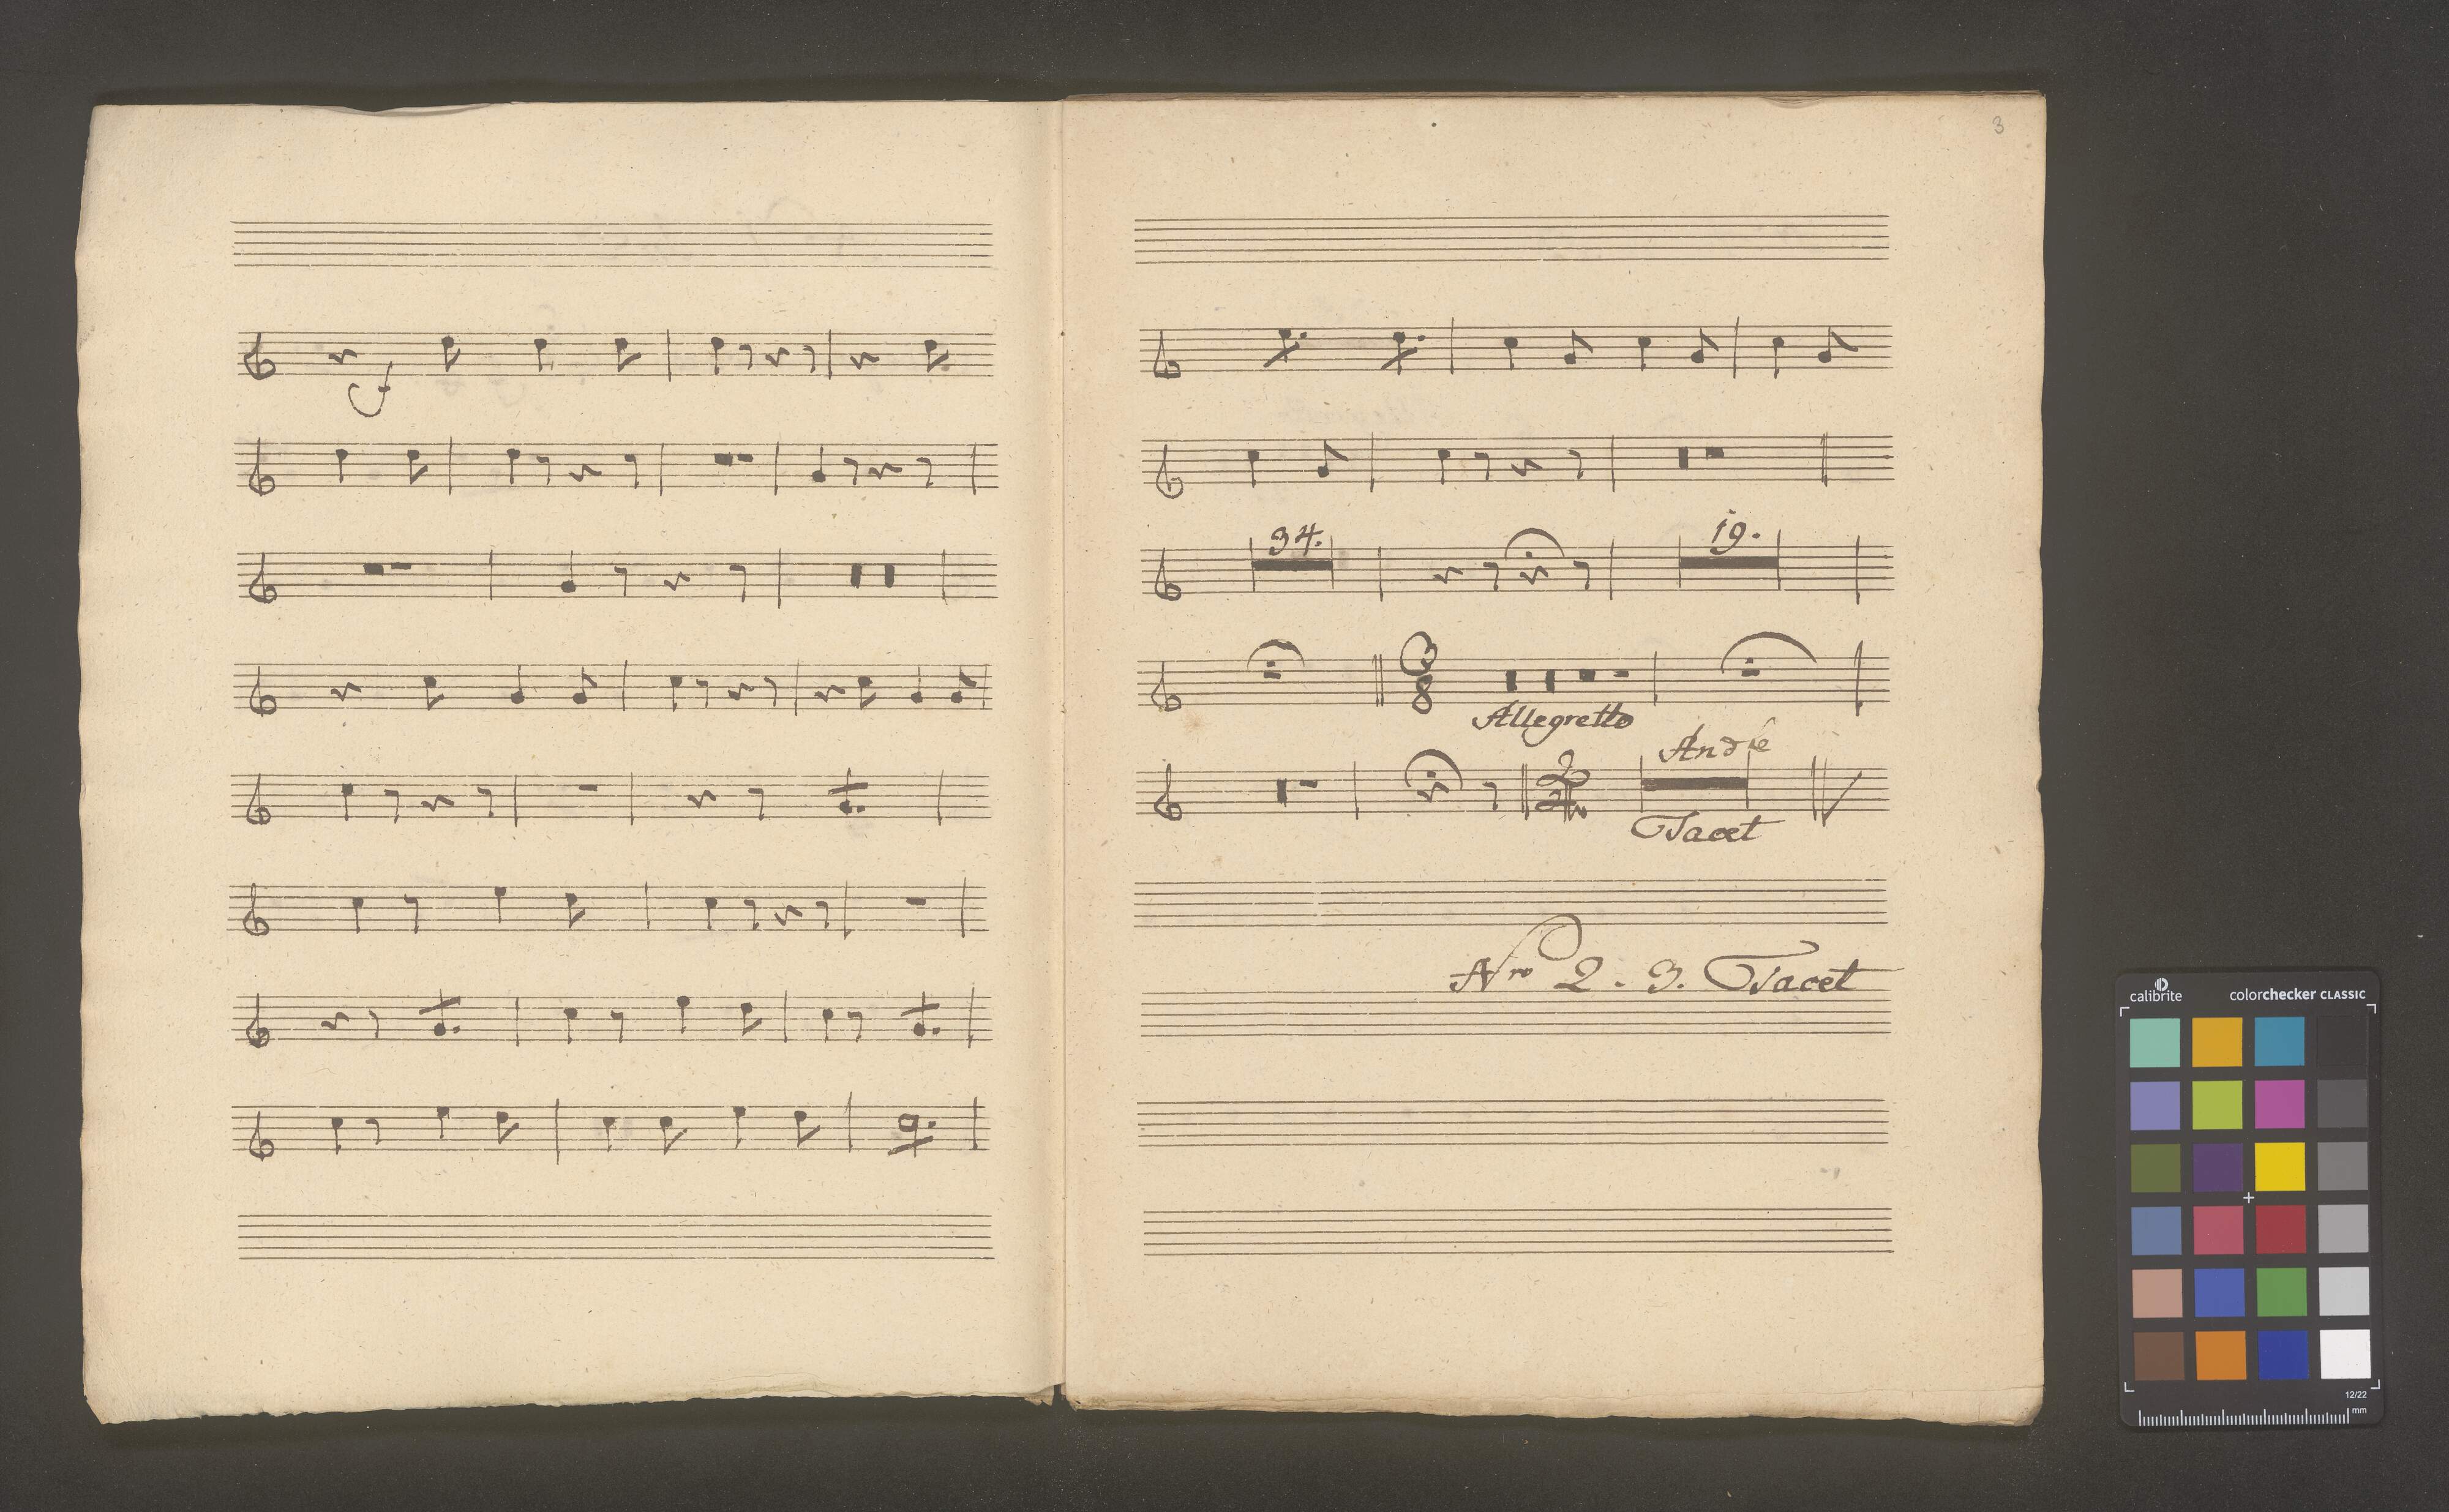 3
f
34.
19.
6
8
Allegretto
2
4
And.te
Tacet
Nro 2. 3. Tacet
calibrite colorchecker CLASSIC
12/22
mm